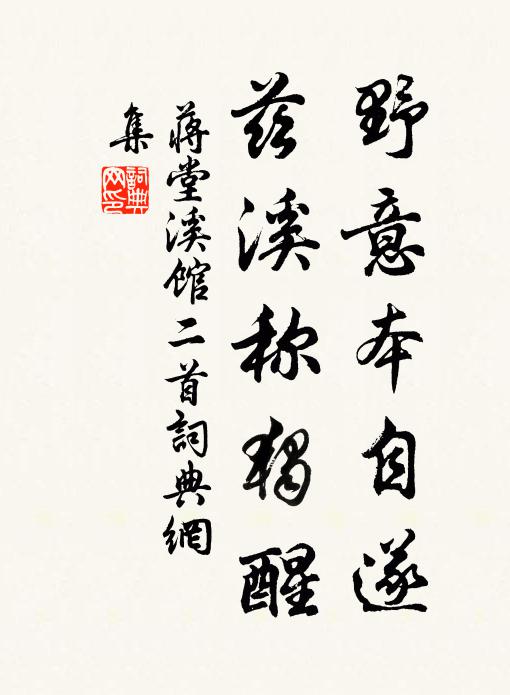 野意本自遂
茲溪称獨醒
蔣堂溪館二首詞典網
集
詞典
网印